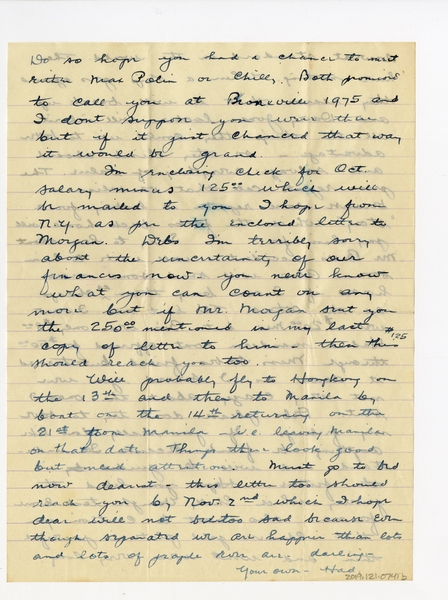 Do so hope you had a chance to meet
either Max Polin or Chilly. Both promised
to call you at Bronxville 1975 and
I dont suppose you were there
but if it just chanced that way
it would be grand.
I'm enclosing check for Oct.
salary minus 125.00 which will
be mailed to you I hope from
N.Y. as per the enclosed letter to
Morgan. Debs I'm terribly sorry
about the uncertainty of our
finances now you never know
what you can count on any
more but if Mr. Morgan sent you
the 250.00 mentioned in my last
copy of letter to him then this $125
should reach you too.
Will probably fly to Hongkong on
the 13th and then to Manila by
boat on the 14th returning on the
21st from Manila i.e. leaving Manila
on that date. Things there look good
but need attention. Must go to bed
now dearest - this letter too should
reach you by Nov. 2nd which I hope
dear will not be too sad because even
though separated we are happier than lots
and lots of people ever are. darling -
Your own - Had
2019.121.0741 b